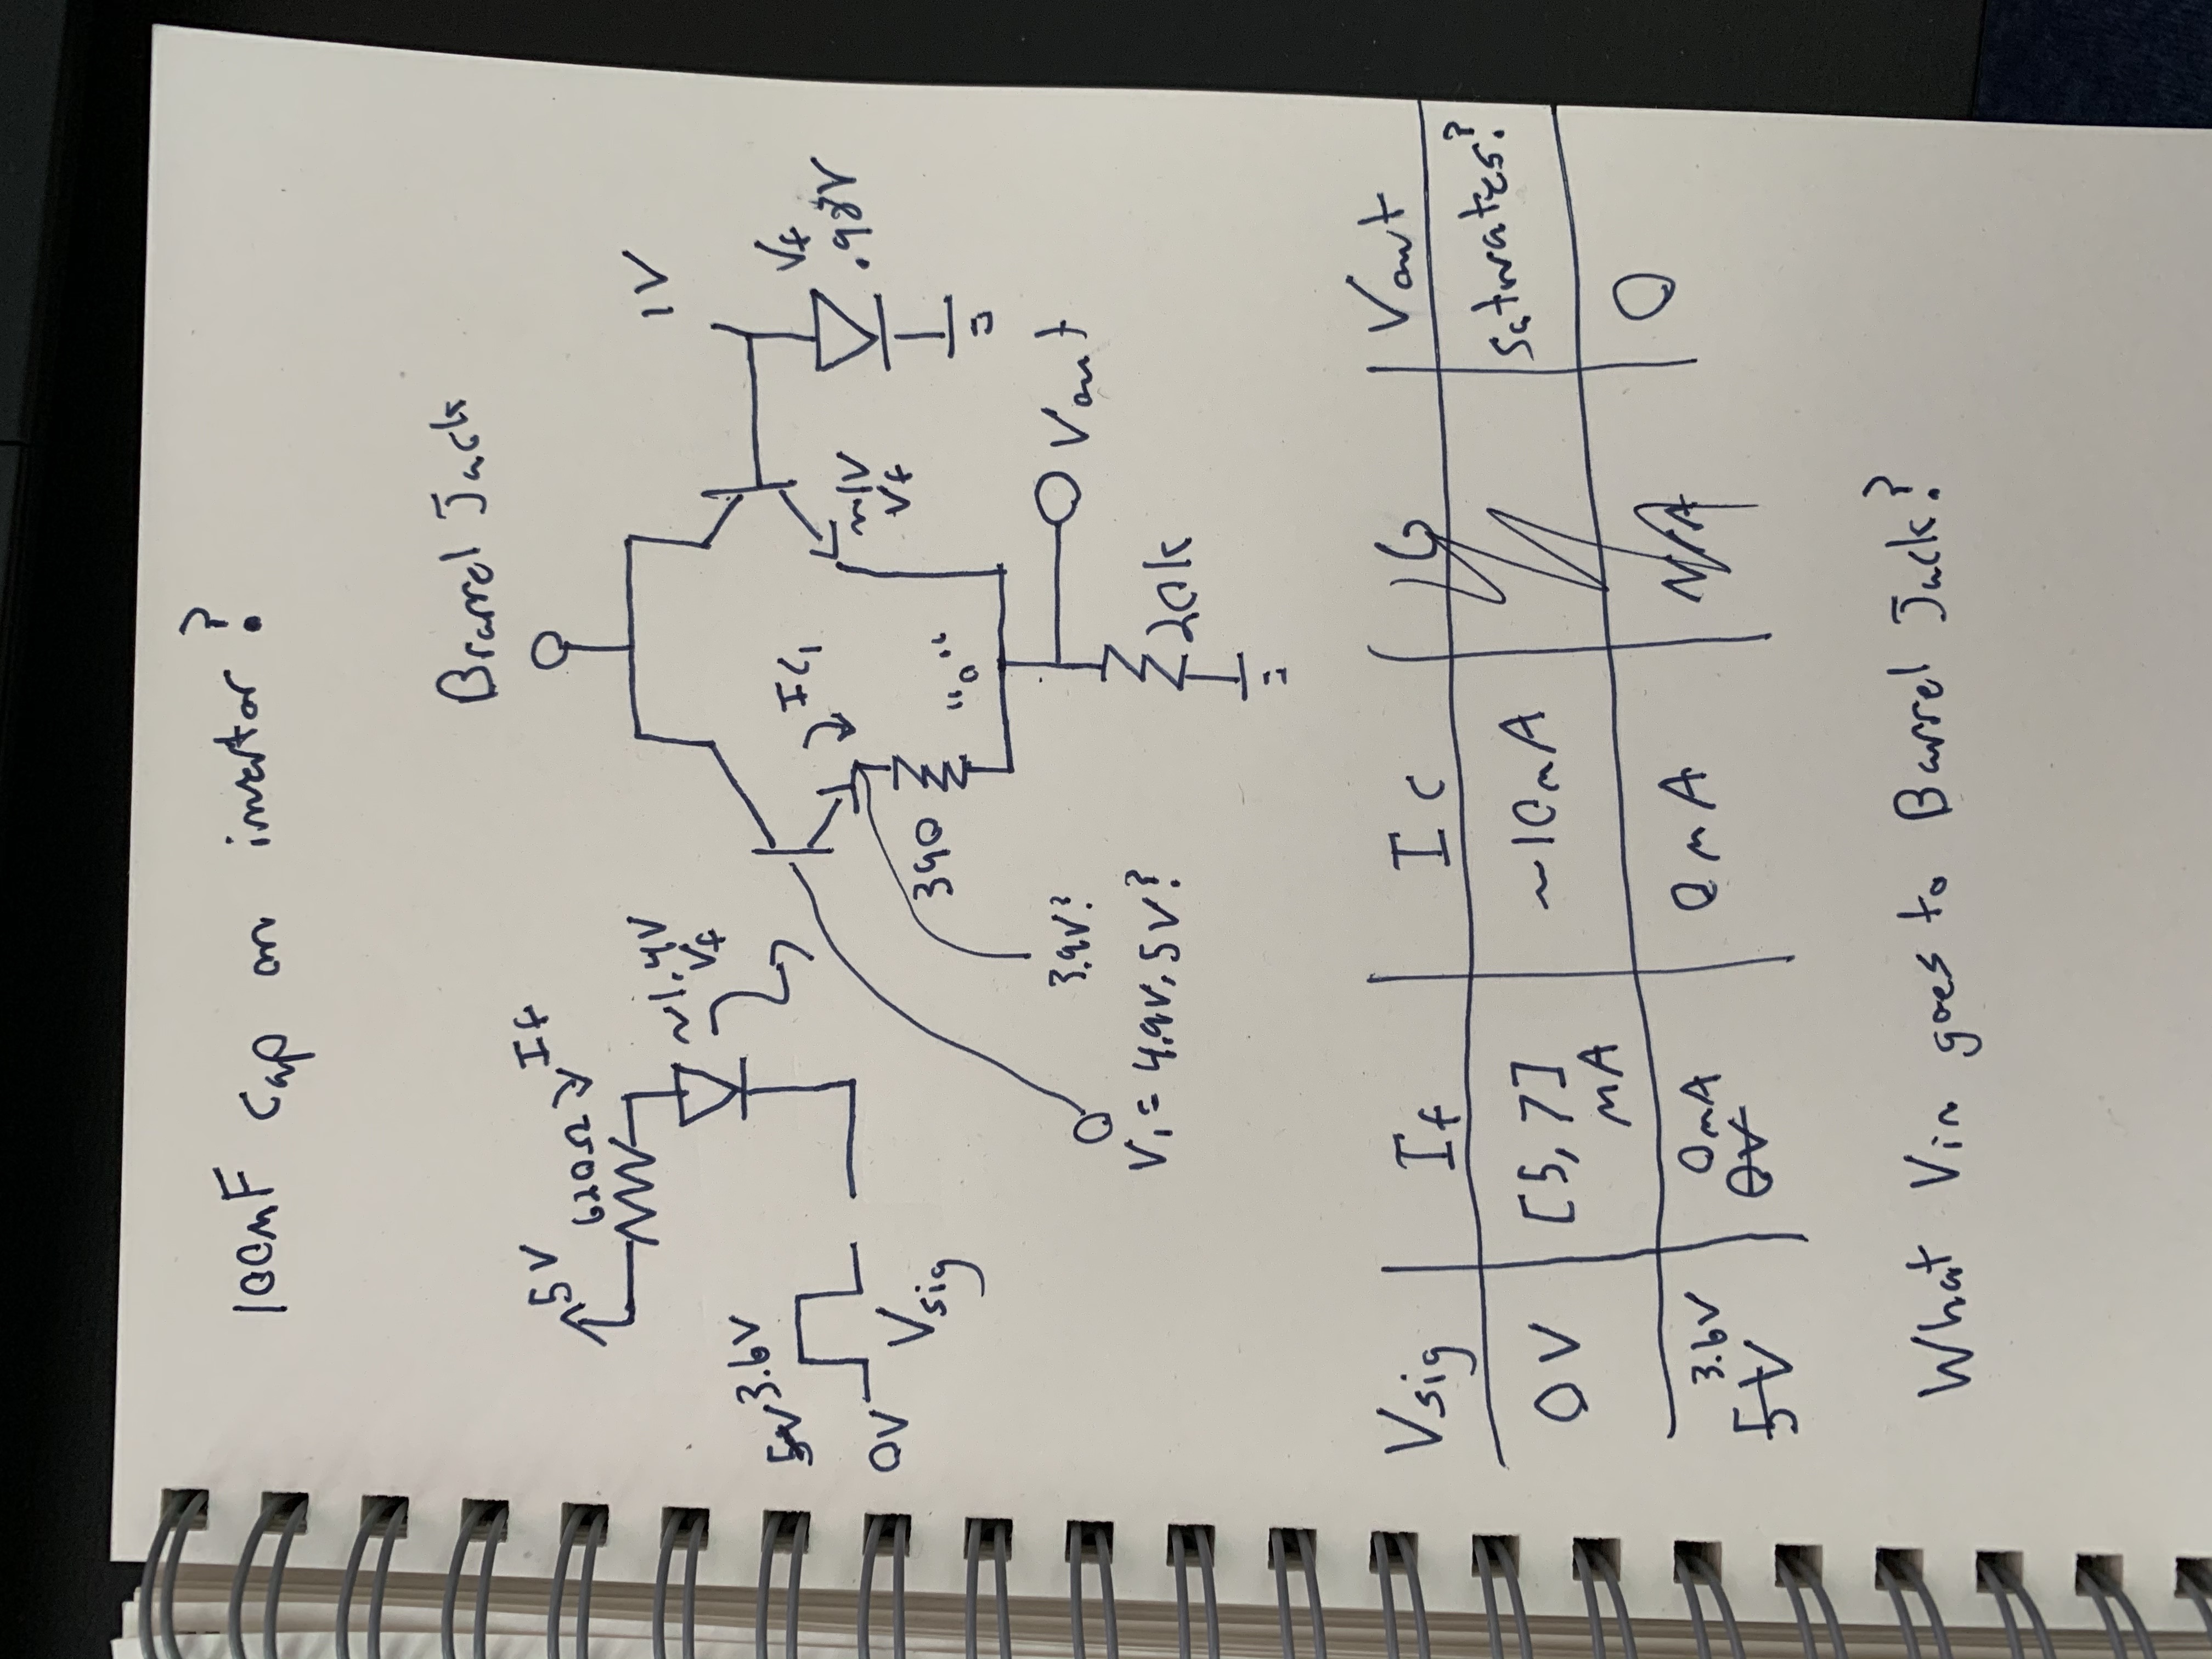 100nF Cap on invertor?
Brarrel Jack
5V
620Ω
If
~1.4V
Vf
1V
5V 3.6V
0V
Vsig
IC1
Vf
.98V
~1V
Vf
390
"0"
3.9V?
Vout
V1 = 4.9V, 5V?
20k
Vsig If Ic Vout
0V [5, 7] mA ~10mA Saturates?
3.6V 0mA 0mA N/A 0
5V 0V
What Vin goes to Barrel Jack?